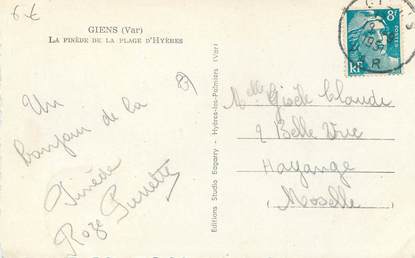 6 €
GIENS (Var)
LA PINÈDE DE LA PLAGE D'HYÈRES
Un
bonjour de la
Pinède
Roze Pierrette
Editions Studio Bagarry - Hyères-les-Palmiers (Var)
8F
POSTES
RF
Melle Gisèle Claude
2 Belle Vue
Hayange
Moselle